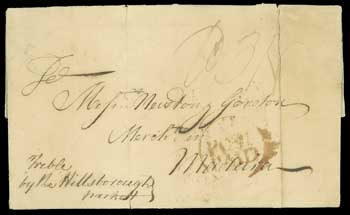 To
Messrs Newton & Gordon
Merchts in
Madeira
Treble
by the Hillsborough
packett